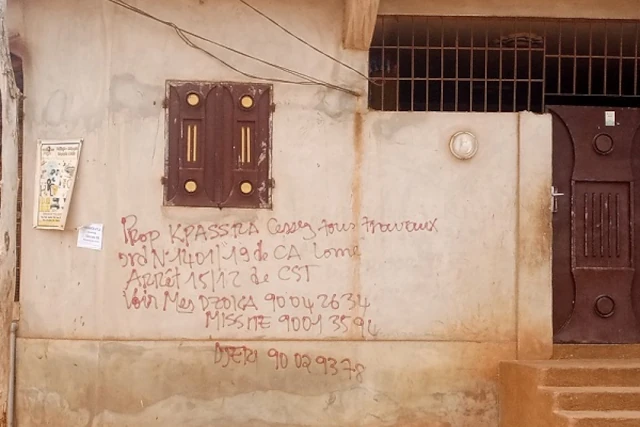 Prop KPASSRA Cessez tous travaux
ord N° 1401/19 de CA Lomé
Arrêt 15/12 de CST
Voir Mes DZOKA 90 04 26 34
MISSITE 9001 35 94
DJERI 90 02 93 78